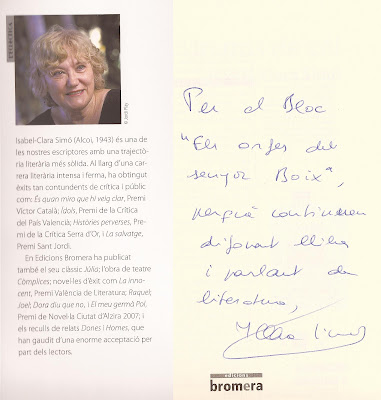 Isabel-Clara Simó (Alcoi, 1943) és una de
les nostres escriptores amb una trajectò-
ria literària més sòlida. Al llarg d'una car-
rera literària intensa i ferma, ha obtingut
èxits tan contundents de crítica i públic
com: És quan miro que hi veig clar, Premi
Víctor Català; Ídols, Premi de la Crítica
del País Valencià; Històries perverses, Pre-
mi de la Crítica Serra d'Or, i La salvatge,
Premi Sant Jordi.
En Edicions Bromera ha publicat
també el seu clàssic Júlia; l'obra de teatre
Còmplices; novel·les d'èxit com La inno-
cent, Premi València de Literatura; Raquel;
Joel; Dora diu que no, i El meu germà Pol,
Premi de Novel·la Ciutat d'Alzira 2007; i
els reculls de relats Dones i Homes, que
han gaudit d'una enorme acceptació per
part dels lectors.
Per al Bloc
"Els orfes del
senyor Boix",
perquè continueu
difonent llibres
i parlant de
literatura,
edicions
bromera